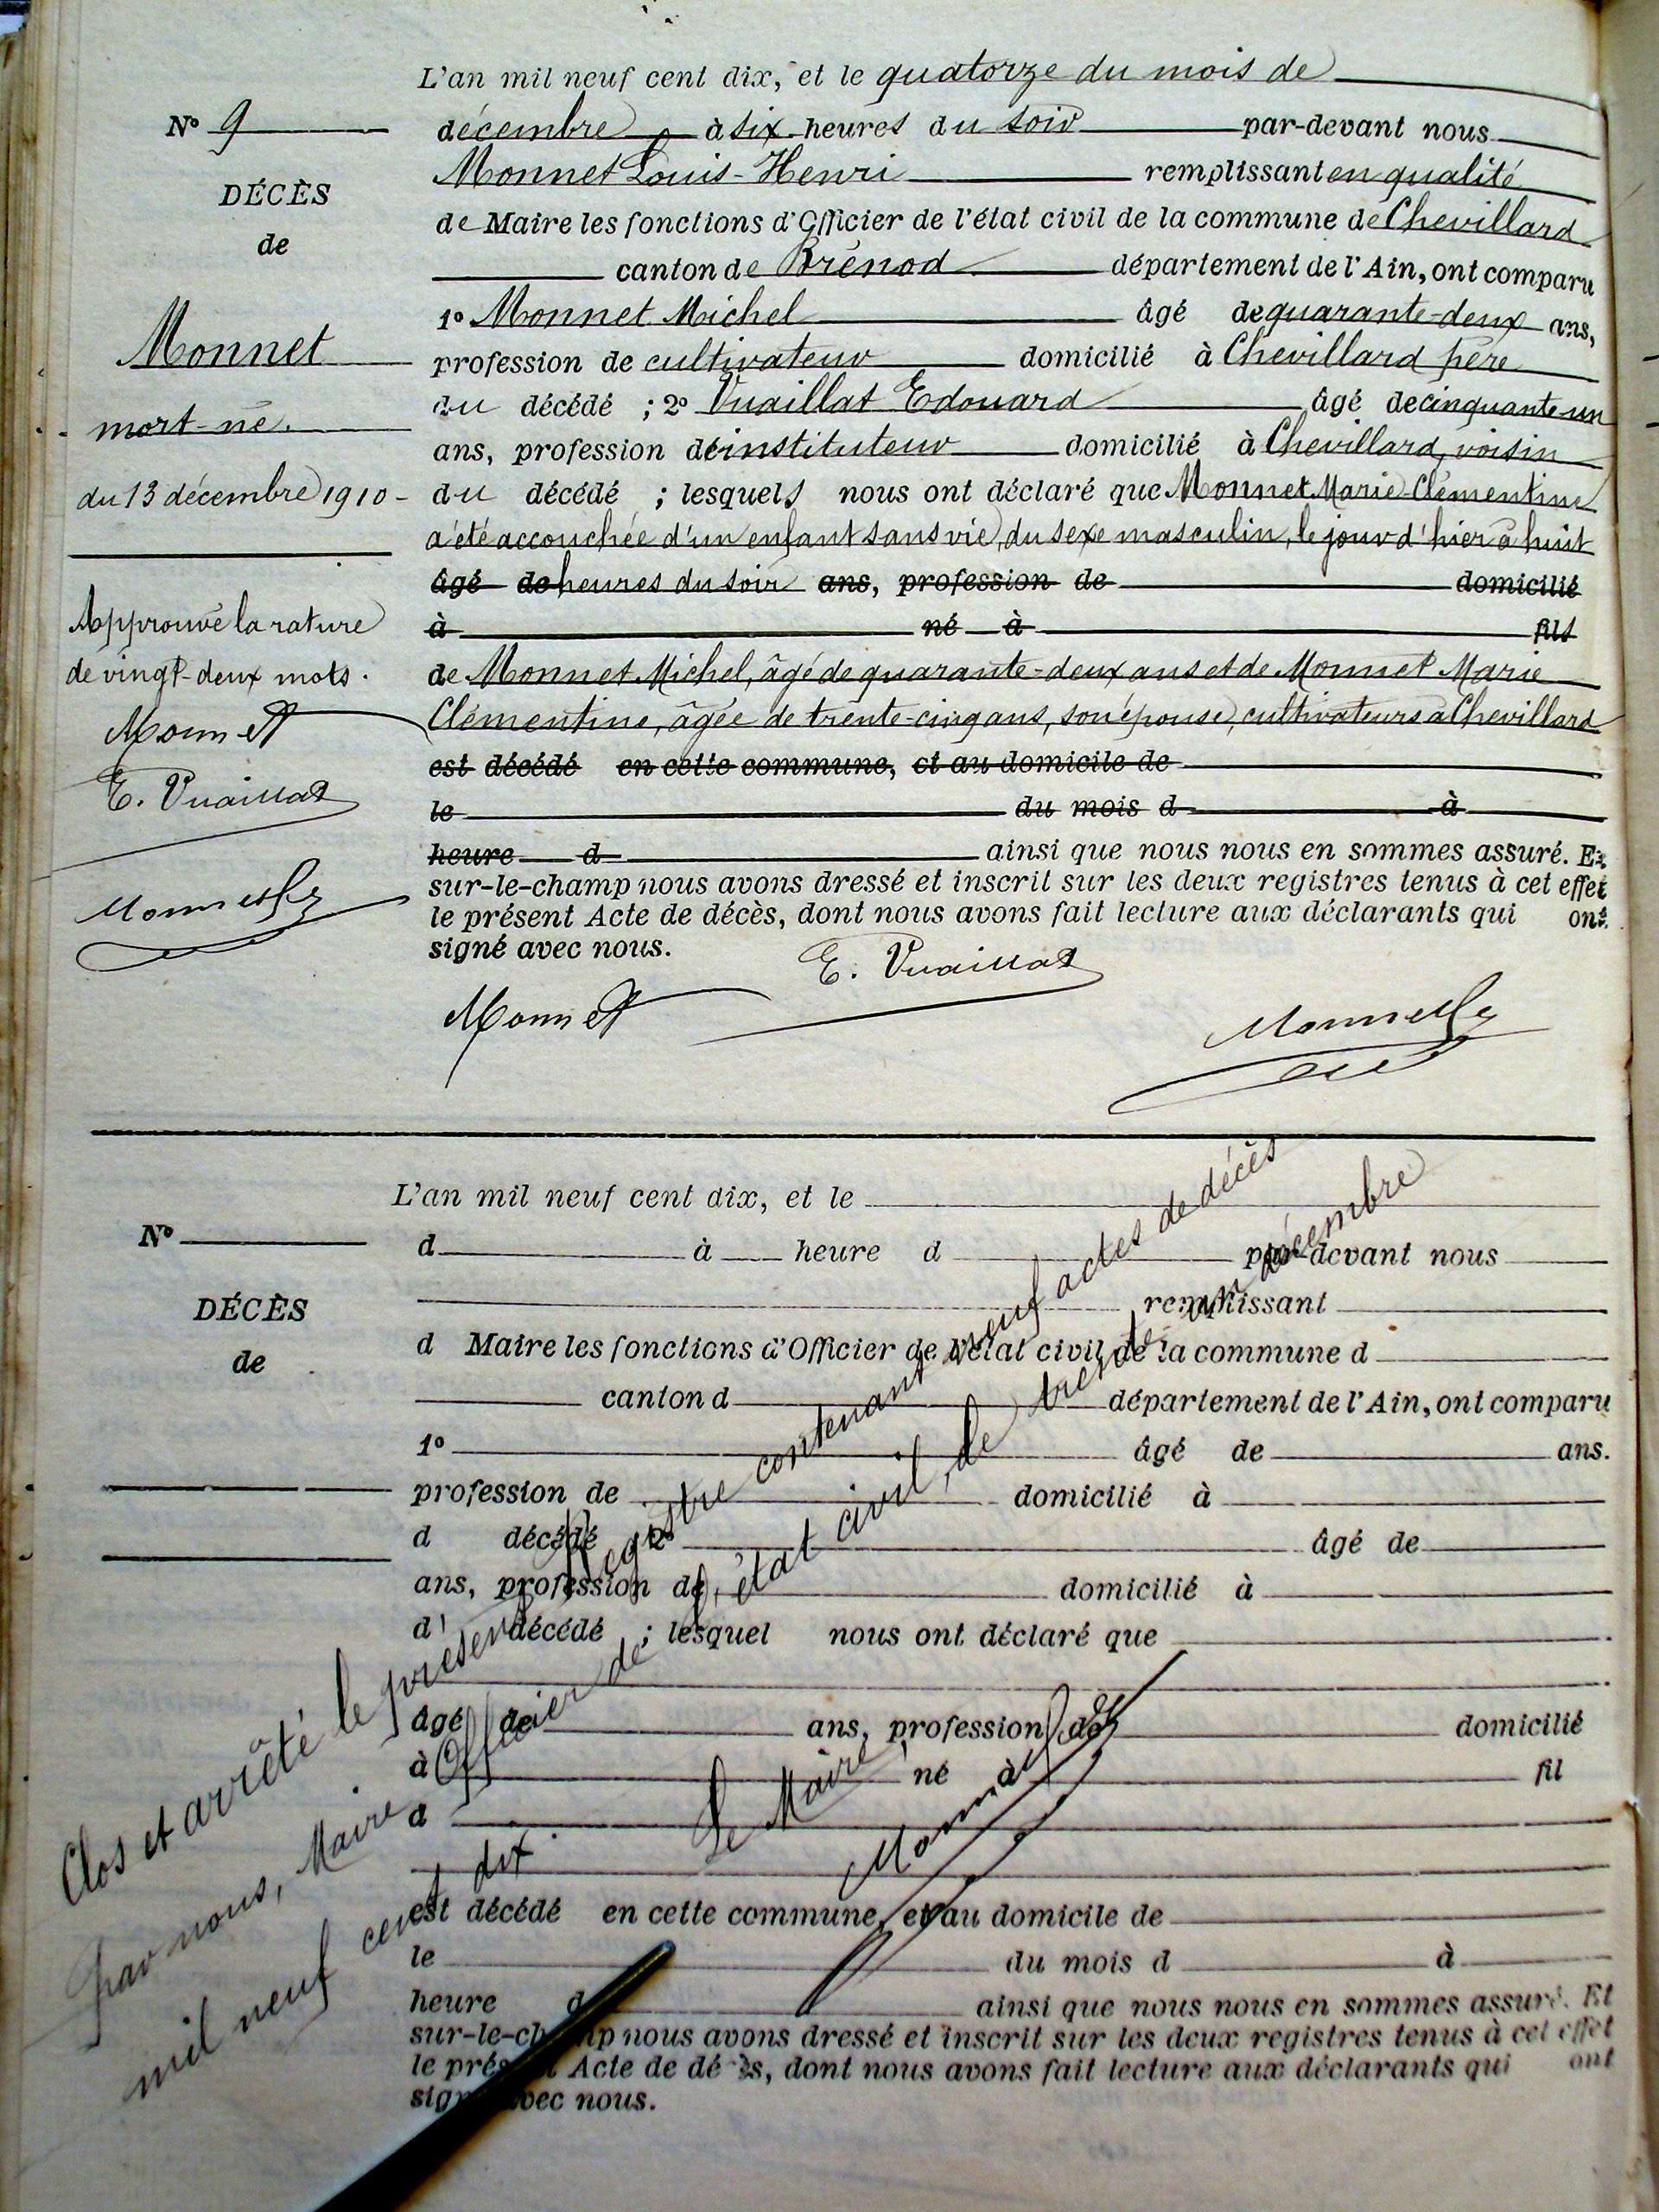 L'an mil neuf cent dix, et le quatorze du mois de
décembre à six heures du soir par-devant nous
Monnet Louis-Henri remplissant en qualité
de Maire les fonctions d'Officier de l'état civil de la commune de Chevillard
canton de Brénod département de l'Ain, ont comparu
1º Monnet Michel âgé de quarante-deux ans,
profession de cultivateur domicilié à Chevillard père
du décédé ; 2º Vuaillat Edouard âgé de cinquante-un
ans, profession de instituteur domicilié à Chevillard, voisin
du décédé ; lesquels nous ont déclaré que Monnet Marie-Clémentine
a été accouchée d'un enfant sans vie, du sexe masculin, le jour d'hier à huit
âgé de heures du soir ans, profession de domicilié
à né à fils
de Monnet Michel, âgé de quarante-deux ans et de Monnet Marie
Clémentine, âgée de trente-cinq ans, son épouse, cultivateurs à Chevillard
est décédé en cette commune, et au domicile de
le du mois d à
heure d ainsi que nous nous en sommes assuré. Et
sur-le-champ nous avons dressé et inscrit sur les deux registres tenus à cet effet
le présent Acte de décès, dont nous avons fait lecture aux déclarants qui ont
signé avec nous.
E. Vuaillat
Monnet
Monnet
Nº 9
DÉCÈS
de
Monnet
mort-né.
du 13 décembre 1910-
Approuvé la rature
de vingt-deux mots.
Monnet
E. Vuaillat
Monnet
L'an mil neuf cent dix, et le
Nº
d à heure d par-devant nous
DÉCÈS
de
remplissant
d Maire les fonctions d'Officier de l'état civil de la commune d
canton d département de l'Ain, ont comparu
1º âgé de ans.
profession de domicilié à
d décédé 2º âgé de
ans, profession de domicilié à
d décédé ; lesquel nous ont déclaré que
âgé de ans, profession de domicilié
à né à fil
d
est décédé en cette commune, et au domicile de
le du mois d à
heure d ainsi que nous nous en sommes assuré. Et
sur-le-champ nous avons dressé et inscrit sur les deux registres tenus à cet effet
le présent Acte de décès, dont nous avons fait lecture aux déclarants qui ont
signé avec nous.
Clos et arrêté le présent registre contenant neuf actes de décès
par nous, Maire Officier de l'état civil, le trente-un décembre
mil neuf cent dix.
Le Maire,
Monnet